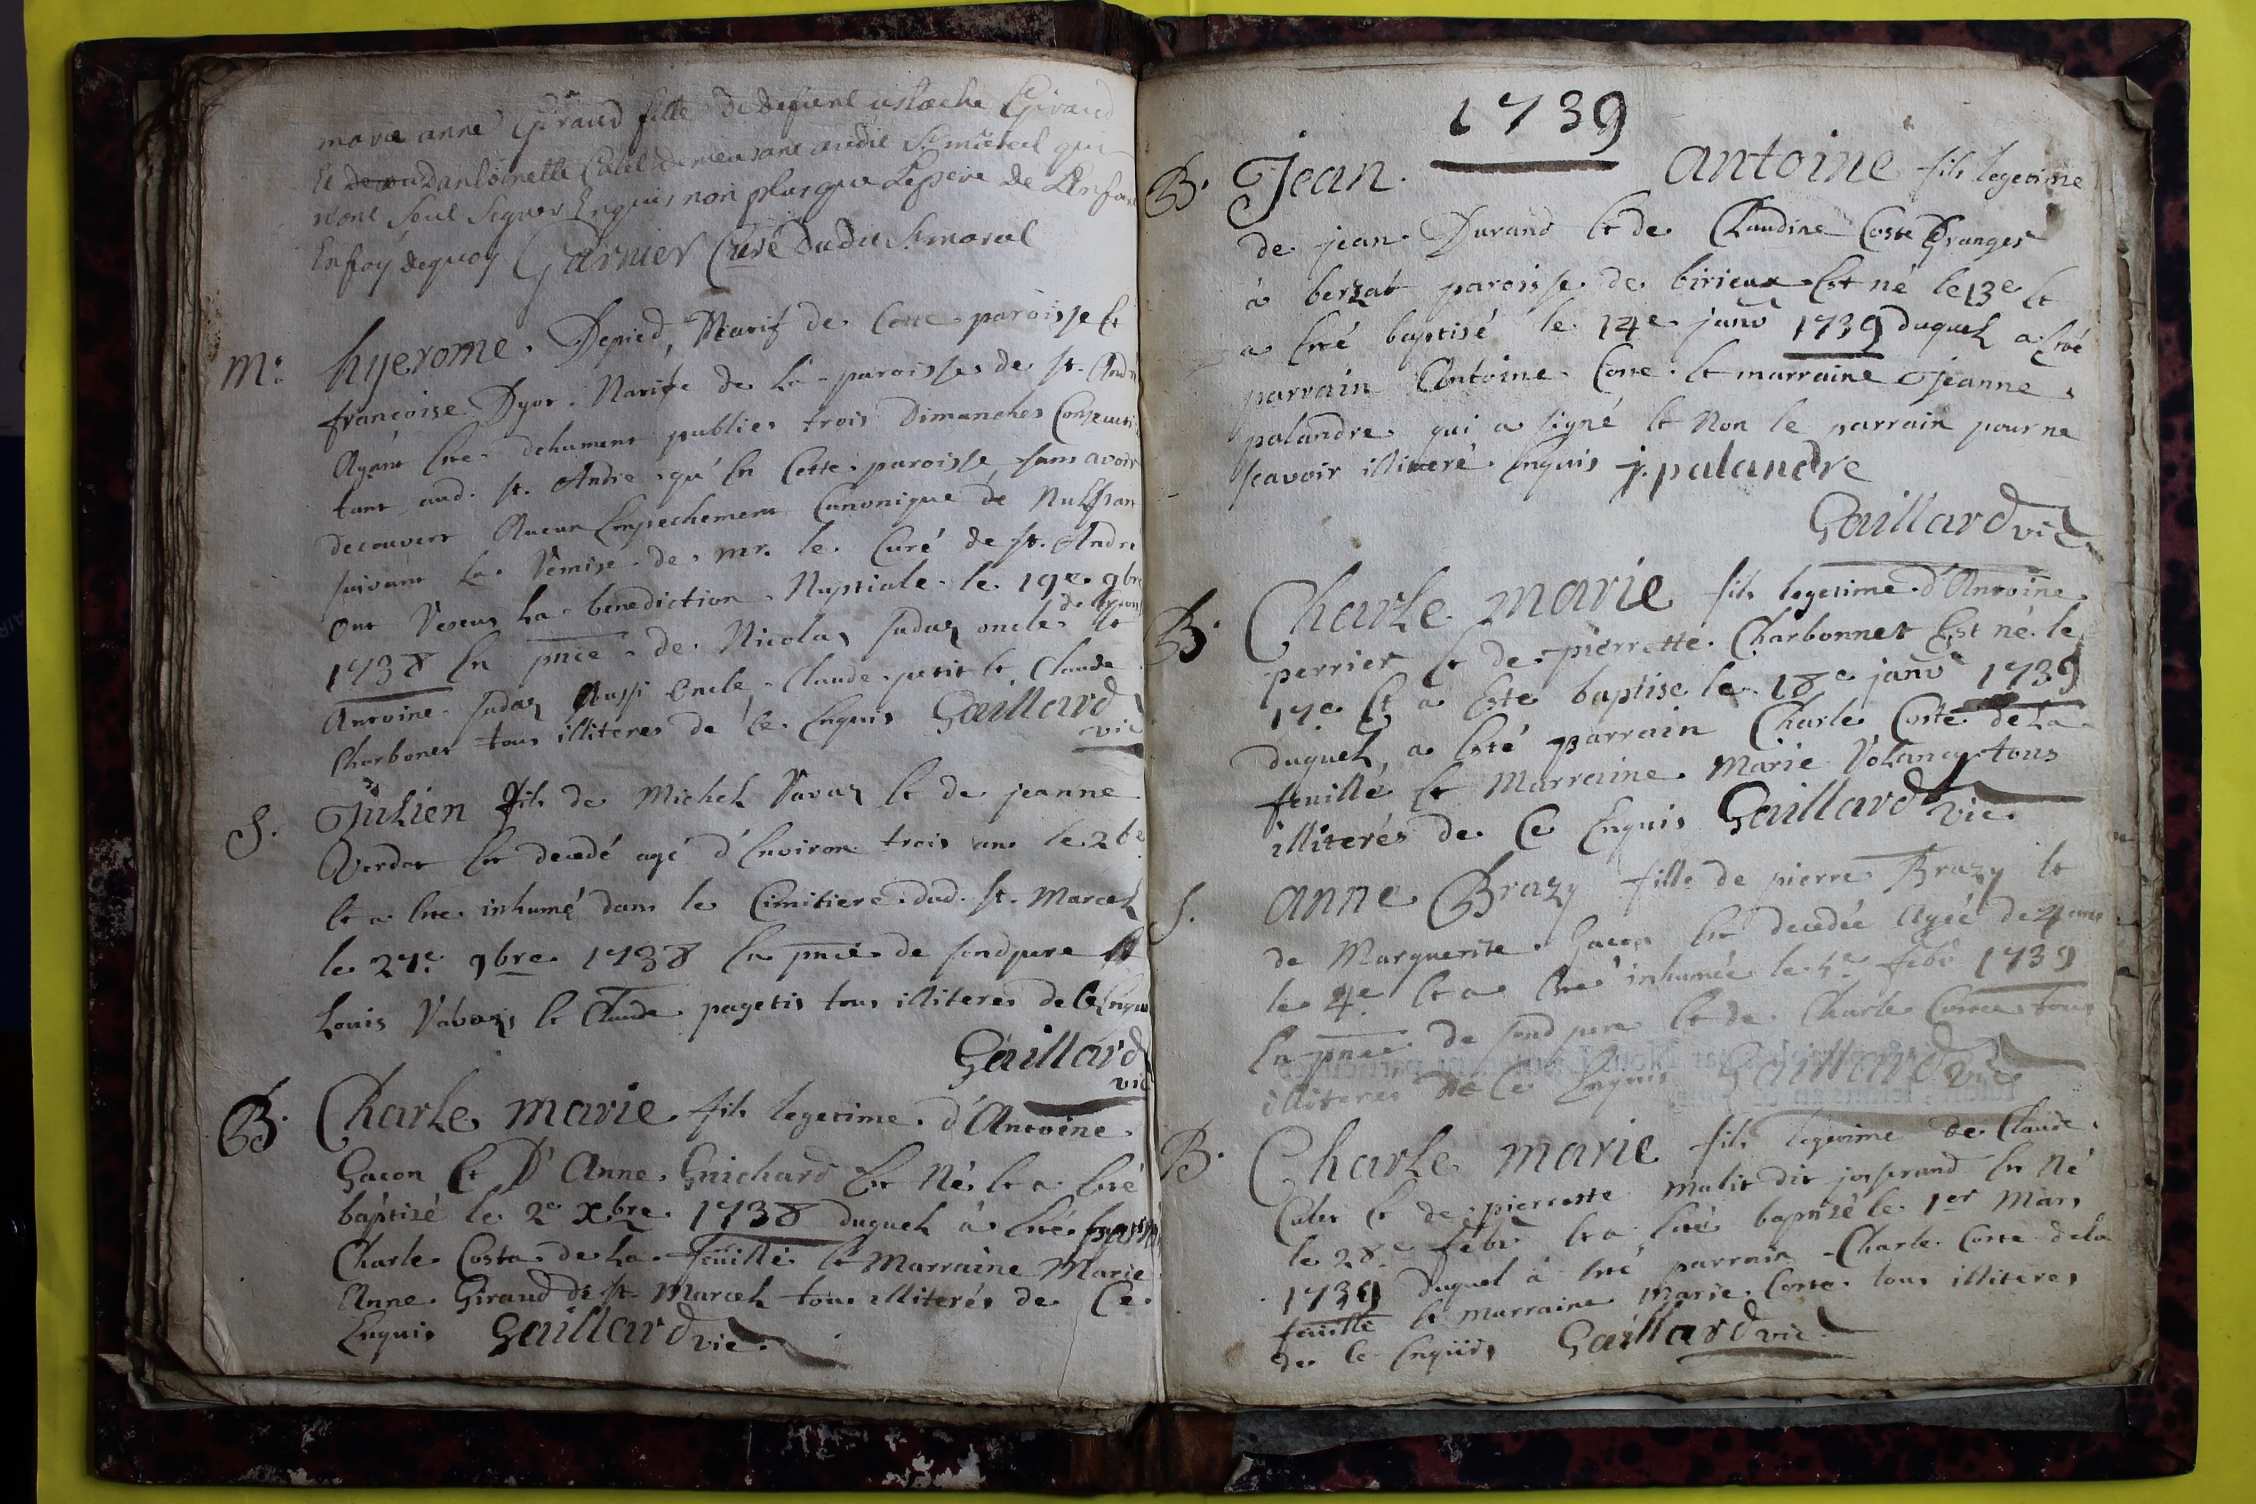 marie anne Giraud fille de defunt ustache Giraud
Et danthoinette Catel demeurans audit St marcel qui
nont sceut signer Enquis non plus que Le pere de L'Enfant
En foÿ dequoy Garnier Curé dudit St marcel
M. hyerome Depied, Natif de Cette paroisse Et
françoise Dyor Native de La paroisse de st. André
Ayant Eté dehument publiés trois Dimanches Consecutifs
tant aud. st. André qu'En Cette paroisse, sans avoir
decouvert Aucun Empechement Canonique de Nulle part
suivant La Remise de mr. le Curé de st. André
Ont Receus La benediction Nuptiale le 19e 9bre
1738 En pnce de Nicolas Judaz oncle Et
Antoine Judaz Aussi Oncle Claude petit Et Claude
Charbonet tous illiteres de Ce Enquis Gaillard
vic
S. Julien fils de Michel Vavaz Et de jeanne
Verdat Est decedé agé d'Environ trois ans le 26e
Et a Eté inhumé dans le Cimitiere dud. st. Marcel
le 27e 9bre 1738 En pnce de sond pere Et
Louis Vavaz Et Claude pagetis tous illiteres de Ce Enquis
Gaillard
vic
B. Charle marie fils legetime d'Antoine
Gacon Et D'Anne Guichard Est Né Et a Eté
baptisé le 2e Xbre 1738 duquel a Eté parrain
Charle Costa de La feuille Et Marraine Marie
Anne Giraud de st. Marcel tous illiterés de Ce
Enquis Gaillard vic.
1739
B. Jean Antoine fils legetime
de jean Durand Et de Claudine Coste Grangers
à berzat paroisse de birieux Est né le 13e Et
a Eté baptisé le 14e janv 1739 duquel a Eté
parrain Antoine Coste Et marraine jeanne
palandre qui a signé Et Non le parrain pour ne
scavoir illiteré Enquis j. palandre
Gaillard vic
B. Charle marie fils legetime d'Antoine
perrier Et de pierrette Charbonnet Est né le
17e Et a Este baptisé le 18e janv 1739
duquel a Esté parrain Charle Coste de La
feuille Et Marraine Marie Volancy tous
illiterés de Ce Enquis Gaillard vic.
S. anne Brazy fille de pierre Brazy Et
de Marguerite Gacon Est decedée Agée de 4 ans
le 4e Et a Eté inhumée le 5e febv 1739
En pnce de sond pere Et de Charle tous
illiteres de Ce Enquis Gaillard vic
B. Charle marie fils legetime de Claude
Catet Et de pierrette mulit dit josserand Est Né
le 28e febv Et a Eté baptisé le 1er Mars
1739 duquel a Eté parrain Charle Coste de la
feuille Et marraine Marie Coste tous illiteres
de Ce Enquis Gaillard vic.